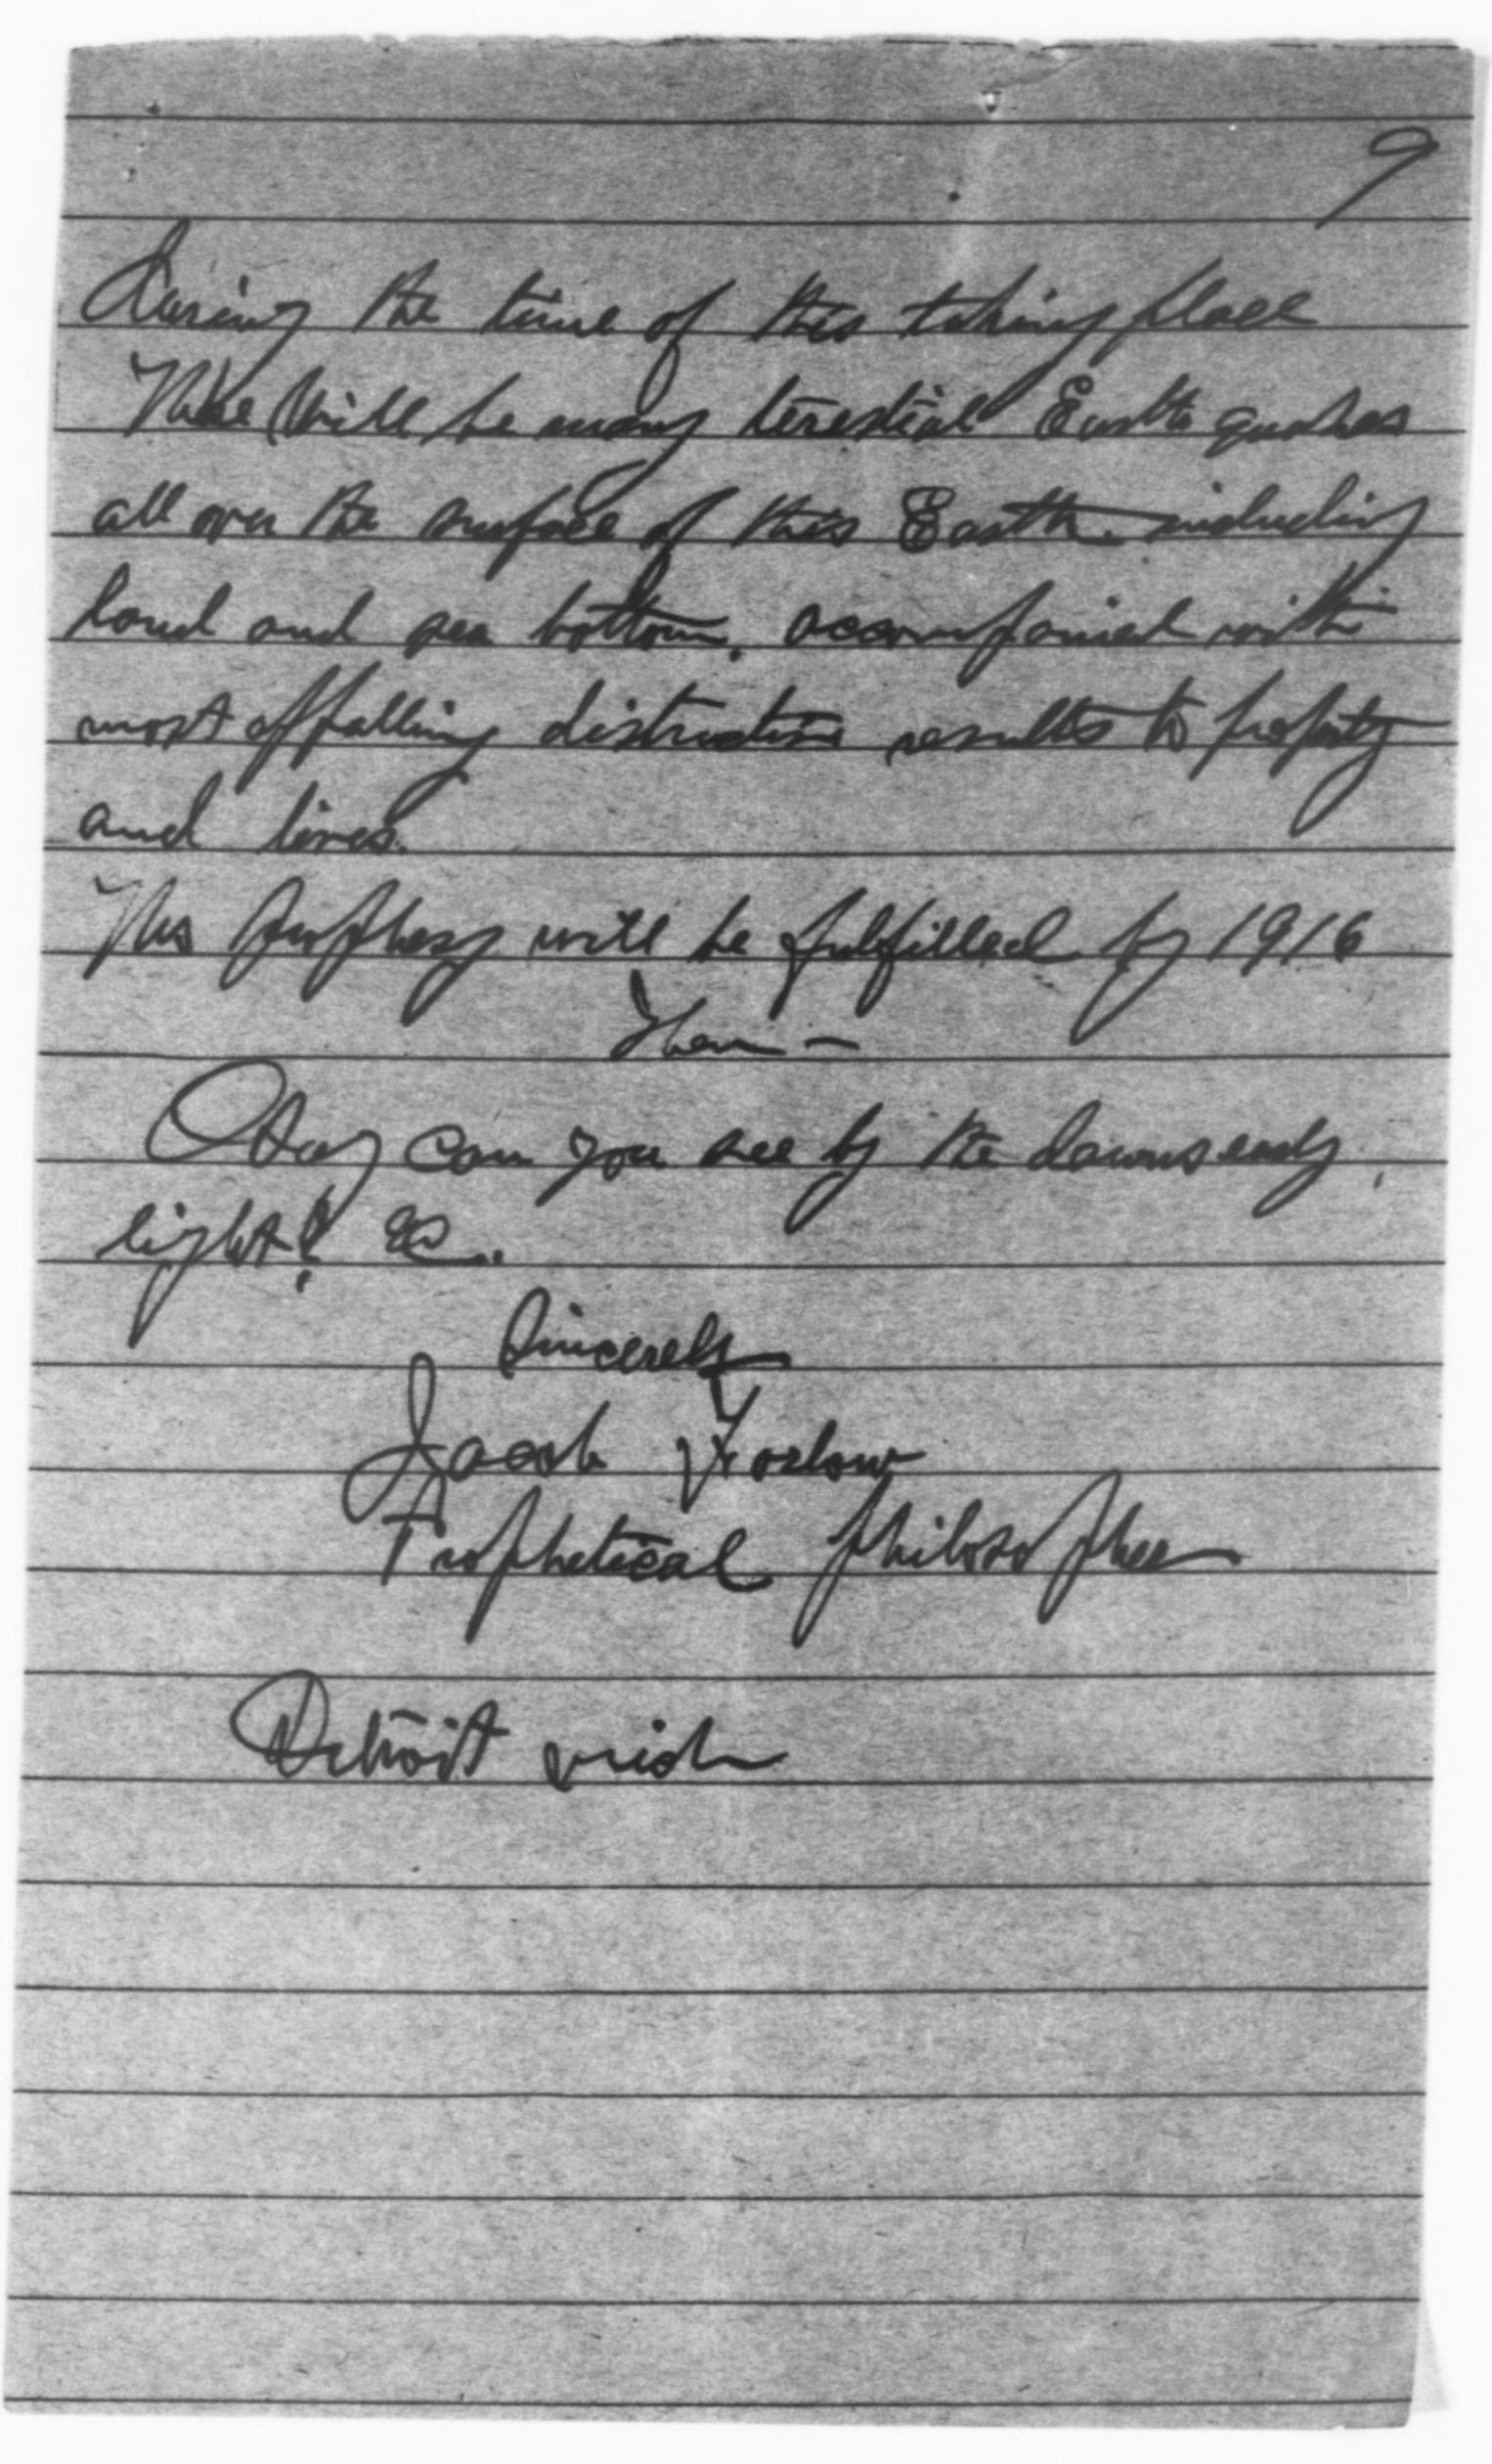 9
During the time of this taking place
There Will be many terestial Earth quakes
all over the surface of this Earth. including
land and sea bottom. accompanied with
most appalling distructive results to property
and lives.
This prophesy will be fulfilled by 1916
Then —
O say can you see by the dawns early
light! &c..
Sincerely
Jacob
Prophetical philosopher
Detroit Mich